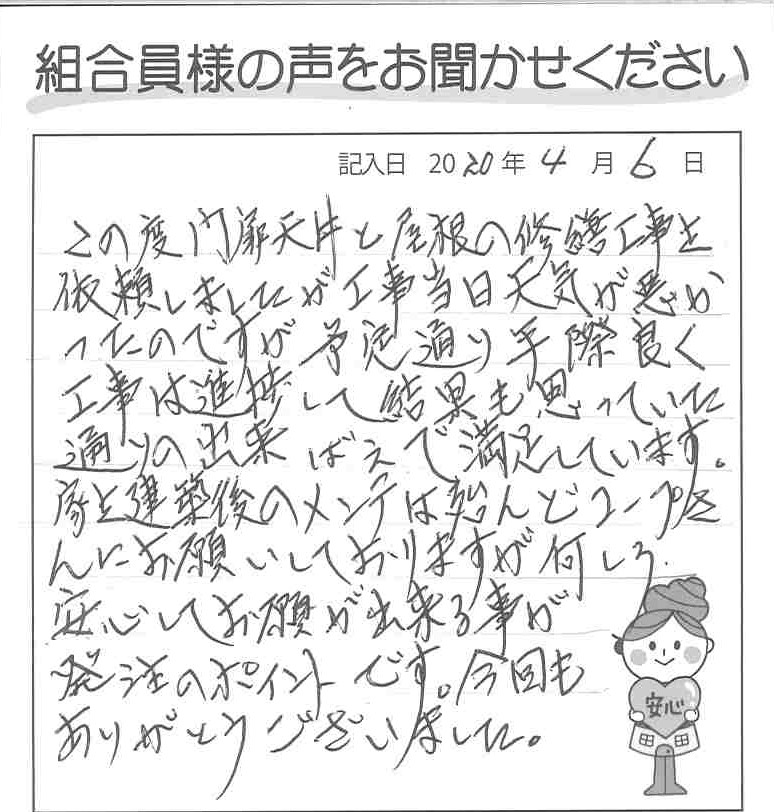 組合員様の声をお聞かせください
記入日 2020年4月6日
この度門扉天井と屋根の修繕工事を
依頼しましたが工事当日天気が悪か
ったのですが予定通り手際良く
工事は進捗して結果も思っていた
通りの出来ばえで満足しています。
家を建築後のメンテは殆んどコープさ
んにお願いしておりますが何しろ
安心してお願が出来る事が
発注のポイントです。今回も
ありがとうございました。
安心